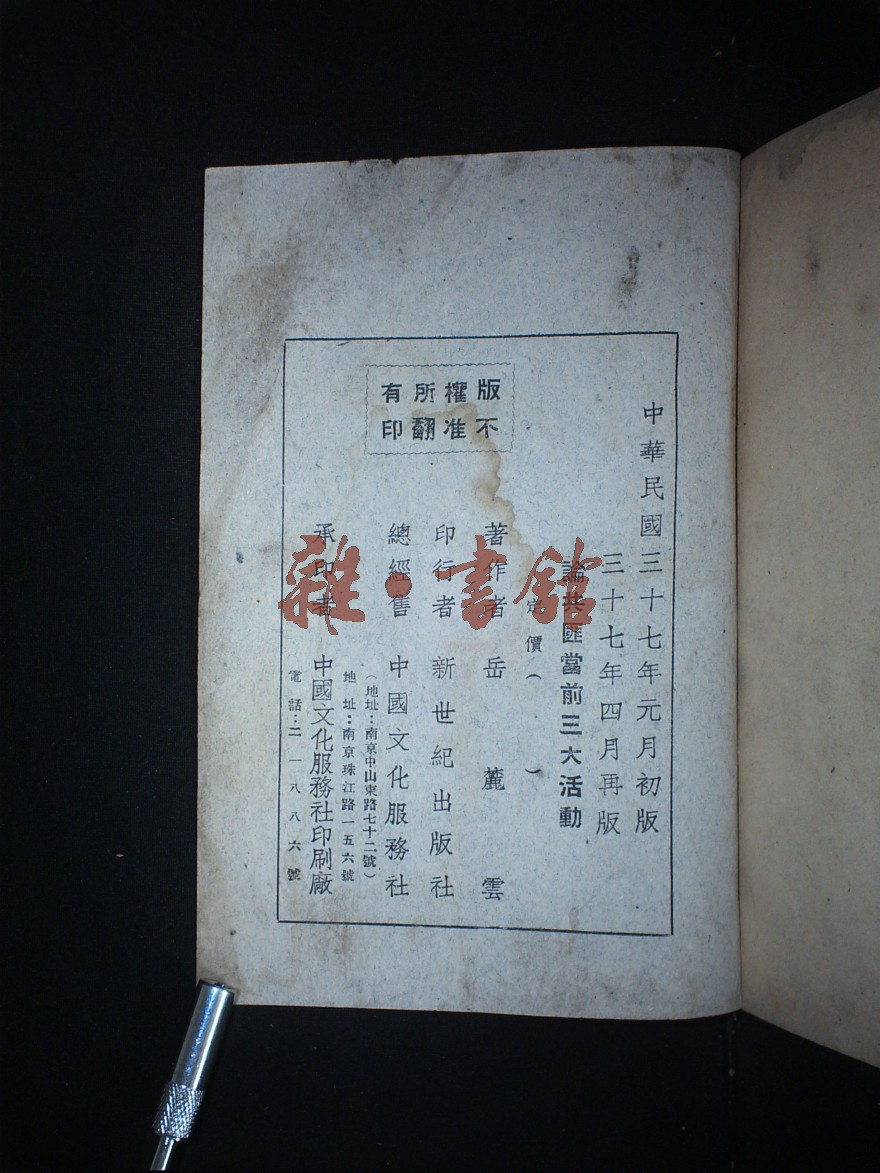 中華民國三十七年元月初版
三十七年四月再版
論共匪當前三大活動
定價（　）
著作者　岳麓雲
印行者　新世紀出版社
總經售　中國文化服務社
（地址：南京中山東路七十二號）
承印者　中國文化服務社印刷廠
地址：南京珠江路一五六號
電話：二一八八六號
版權所有
不准翻印
雜·書館